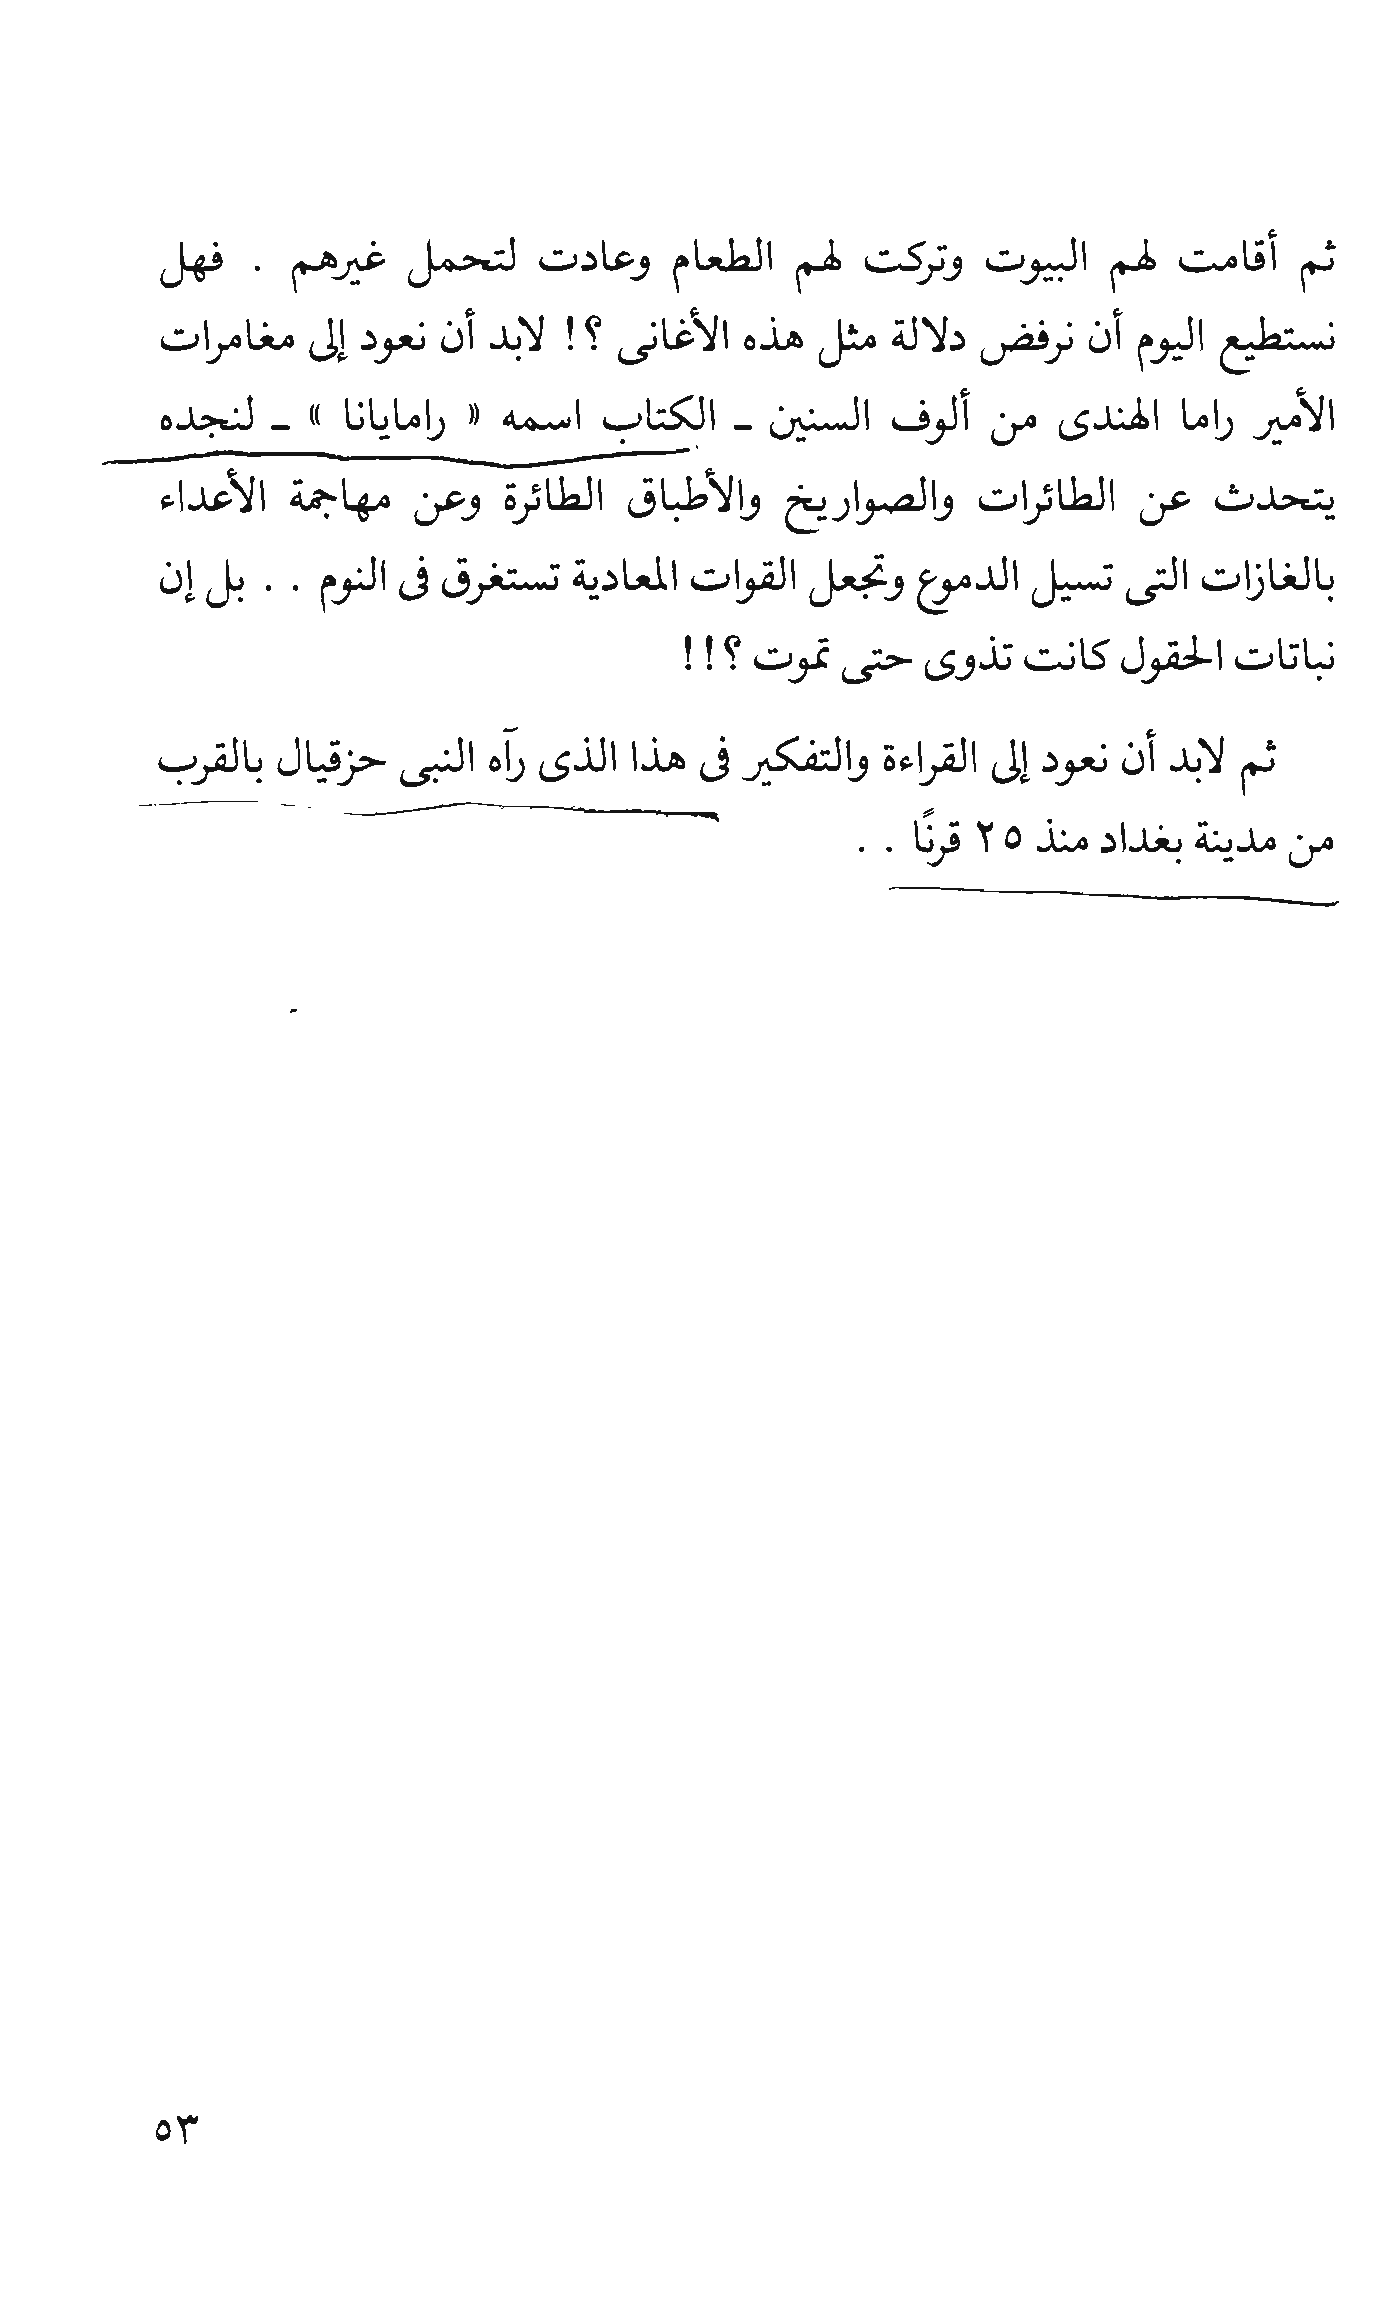 ثم أقامت لهم البيوت وتركت لهم الطعام وعادت لتحمل غيرهم . فهل
نستطيع اليوم أن نرفض دلالة مثل هذه الأغانى ؟! لابد أن نعود إلى مغامرات
الأمير راما الهندى من ألوف السنين ـ الكتاب اسمه « رامايانا » ـ لنجده
يتحدث عن الطائرات والصواريخ والأطباق الطائرة وعن مهاجمة الأعداء
بالغازات التى تسيل الدموع وتجعل القوات المعادية تستغرق فى النوم . . بل إن
نباتات الحقول كانت تذوى حتى تموت ؟!!
ثم لابد أن نعود إلى القراءة والتفكير فى هذا الذى رآه النبى حزقيال بالقرب
من مدينة بغداد منذ ٢٥ قرنًا . .
٥٣